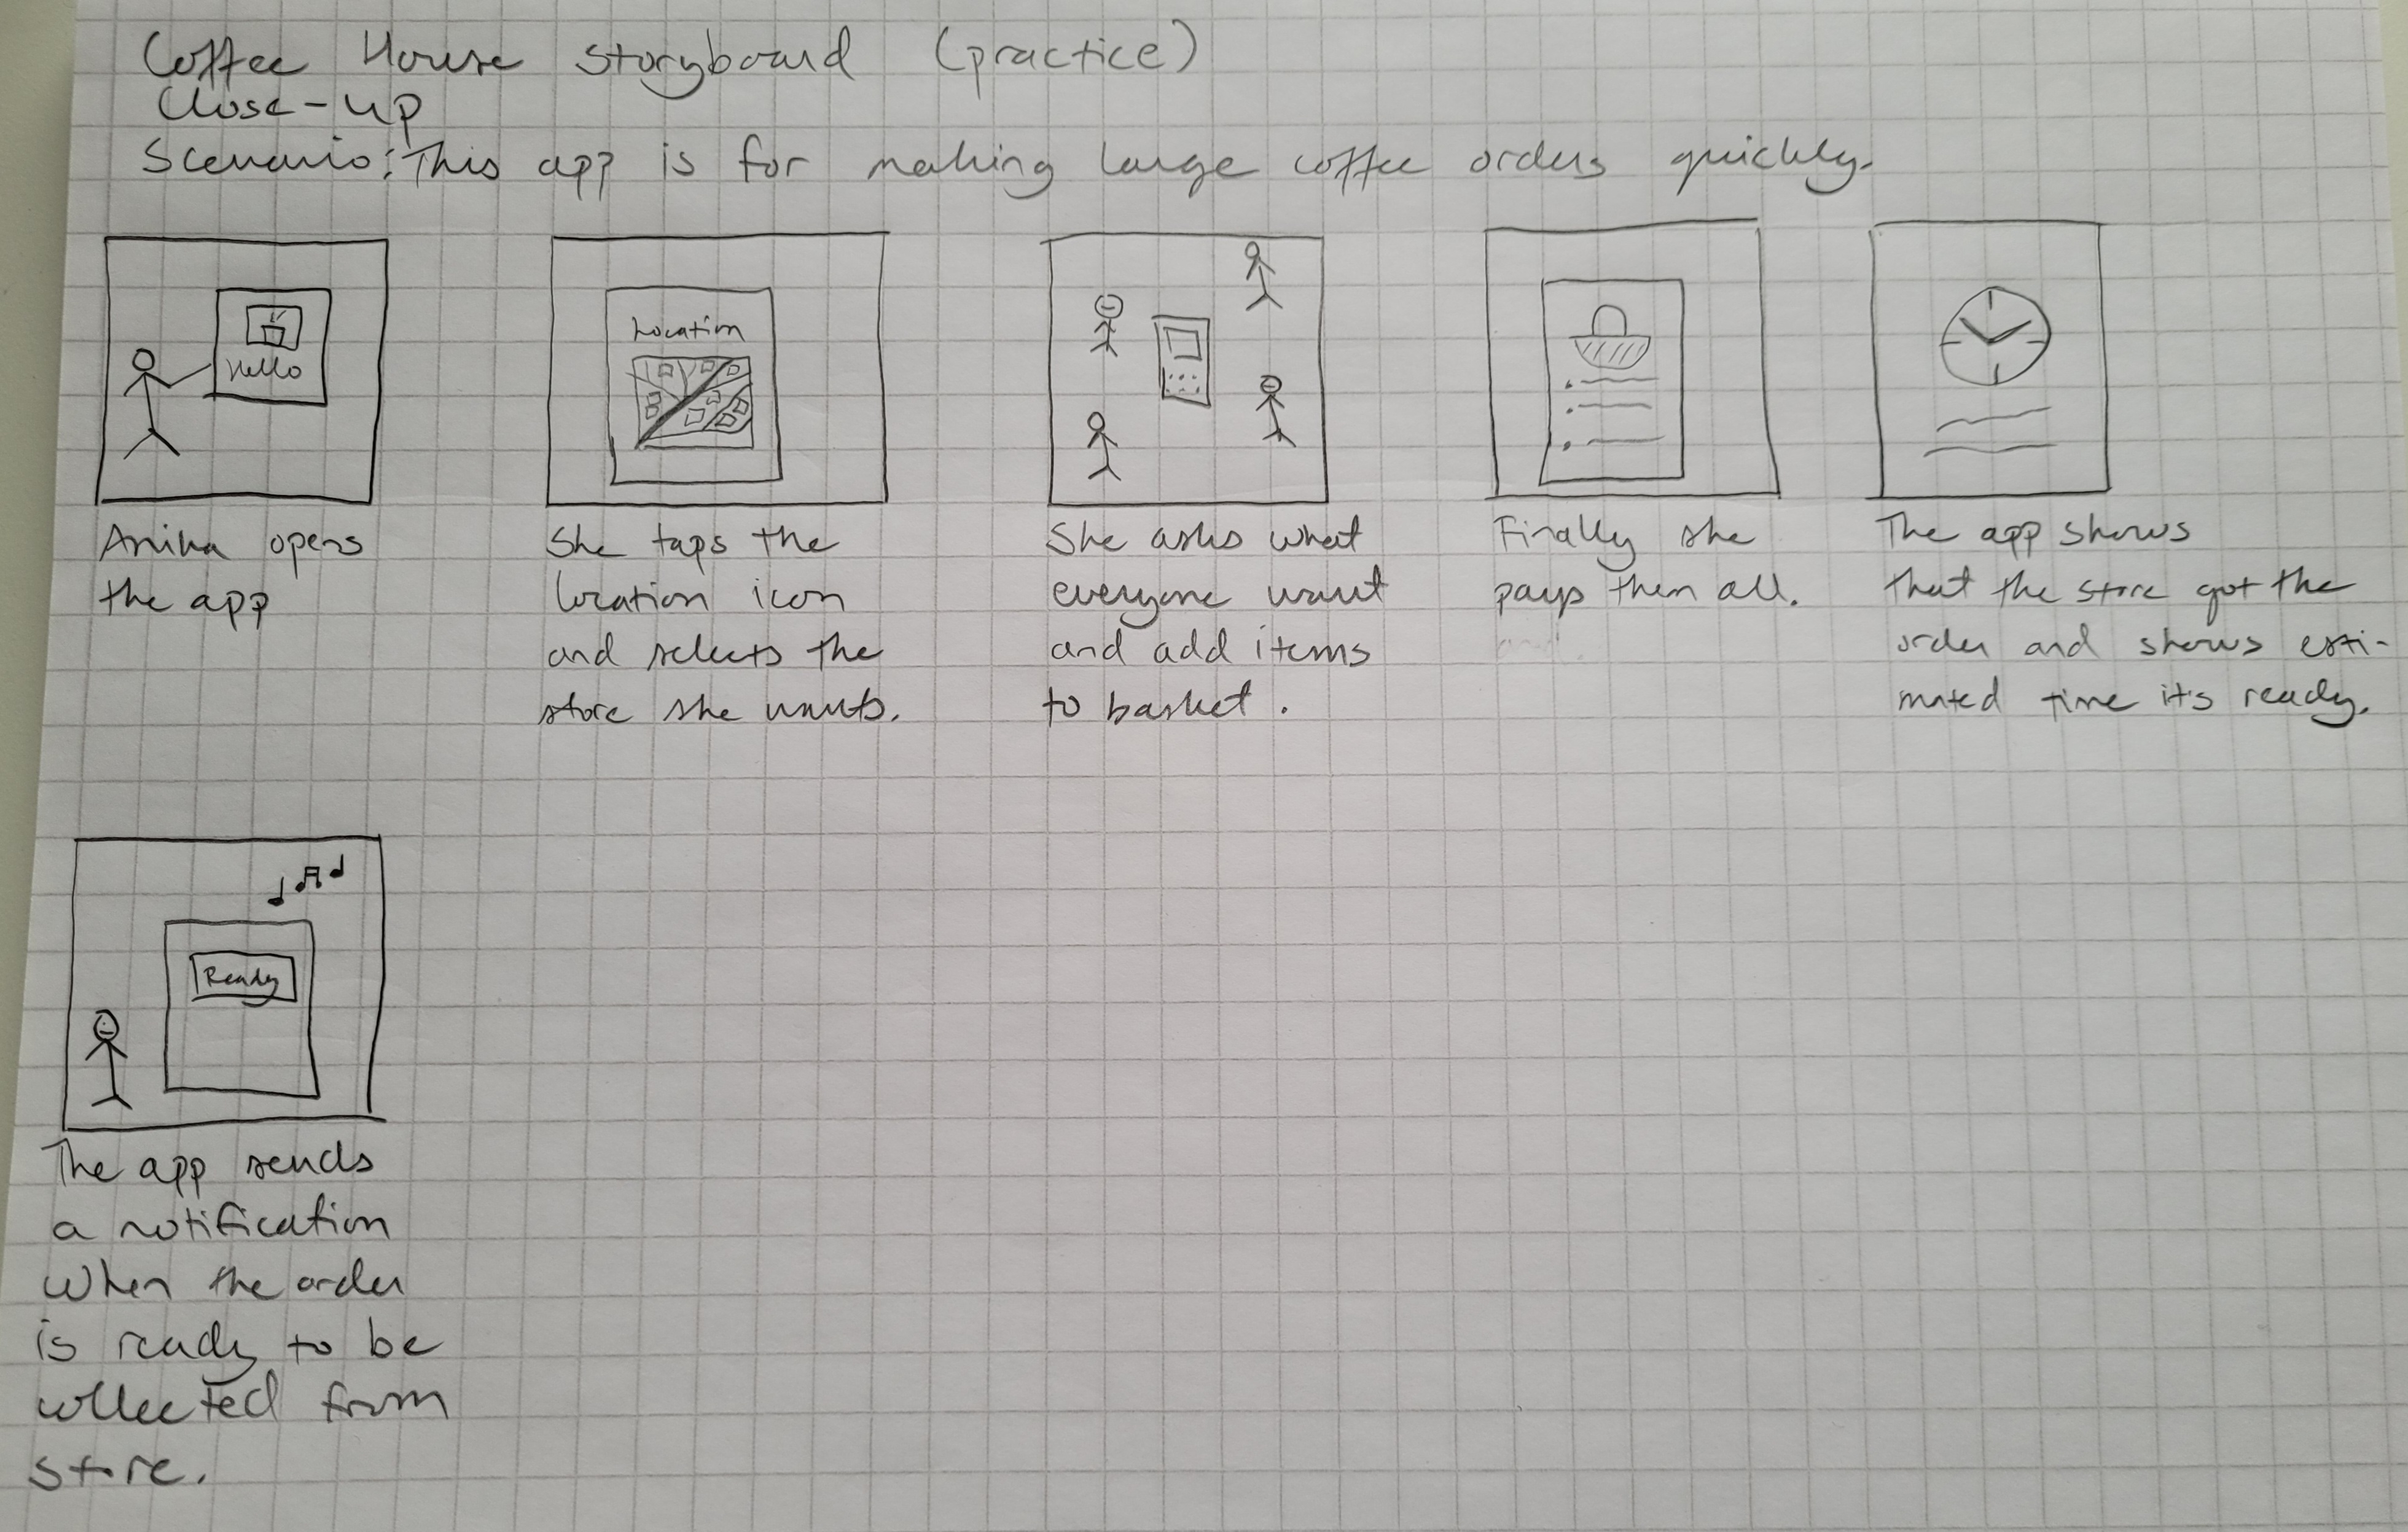 Coffee House Storyboard (practice)
Close-up
Scenario: This app is for making large coffee orders quickly.
Hello
Location
Anika opens
the app
She taps the
location icon
and selects the
store she wants.
She asks what
everyone want
and add items
to basket.
Finally she
pays them all.
The app shows
that the store got the
order and shows esti-
mated time it's ready.
Ready
The app sends
a notification
when the order
is ready to be
collected from
store.